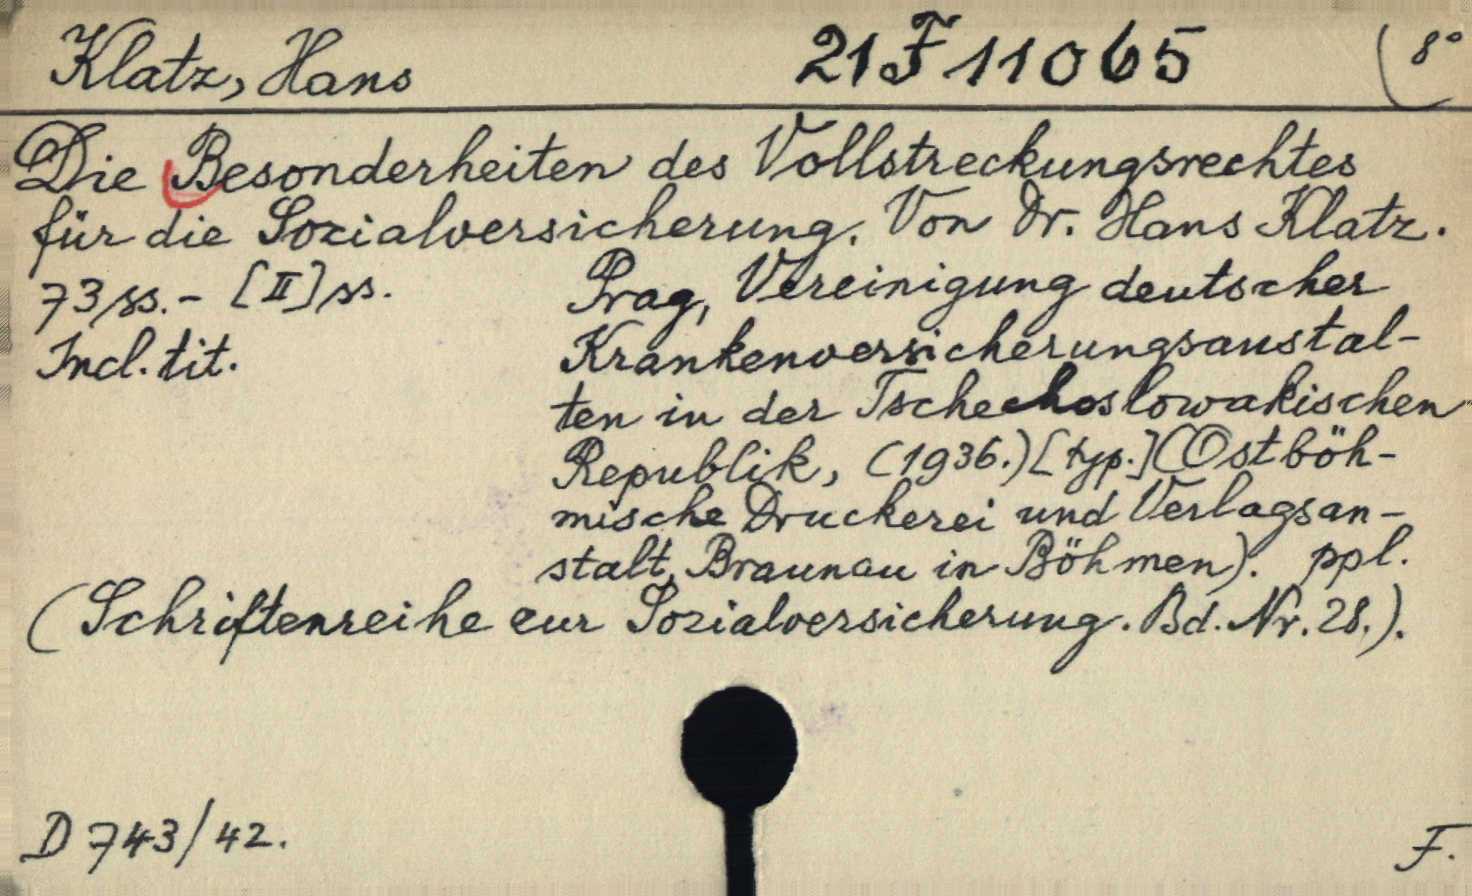 Klatz, Hans 21 F 11065 8°
Die Besonderheiten des Vollstreckungsrechtes
für die Sozialversicherung. Von Dr. Hans Klatz.
73 ss. - [II] ss. Prag, Vereinigung deutscher
Incl. tit. Krankenversicherungsanstal-
ten in der Tschechoslowakischen
Republik, (1936.) [typ.] (Ostböh-
mische Druckerei und Verlagsan-
stalt, Braunau in Böhmen). ppl.
(Schriftenreihe zur Sozialversicherung. Bd. Nr. 28.).
D 743/42. F.